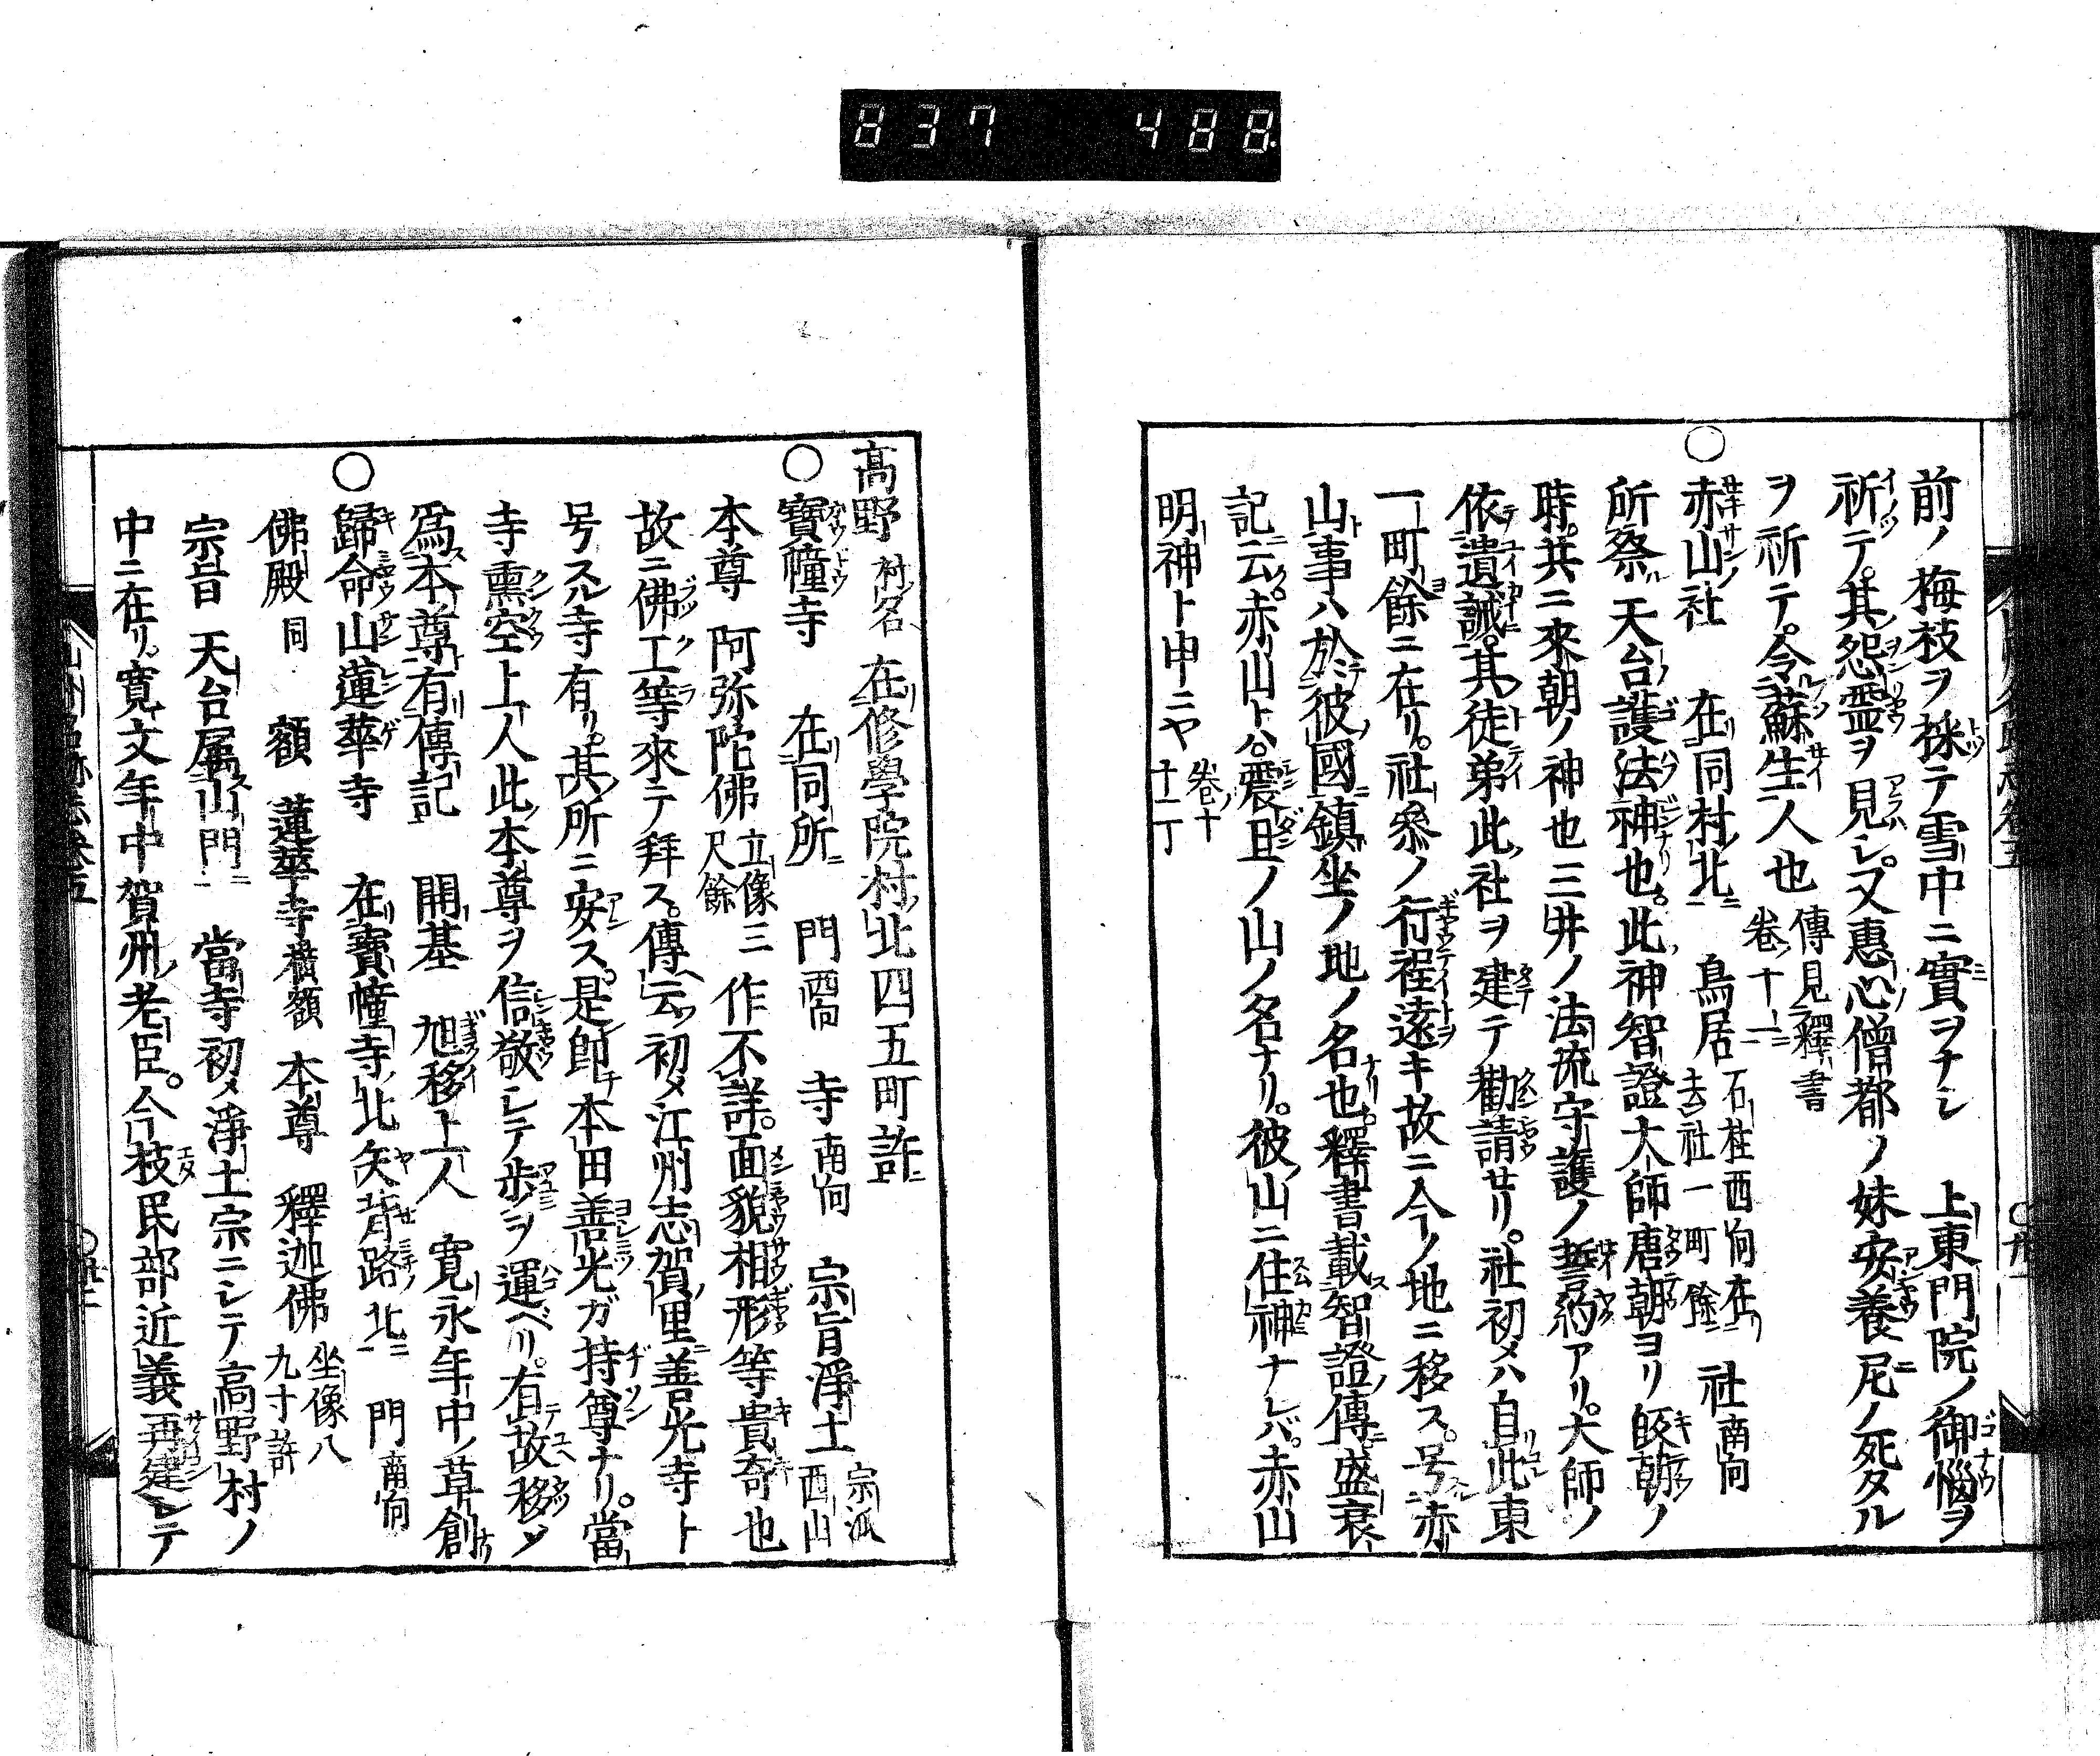 837 488
前ノ梅枝ヲ採テ雪中ニ實ヲナシ 上東門院ノ御惱ヲ
祈テ其怨霊ヲ見シ又惠心僧都ノ妹安養尼ノ死タル
ヲ祈テ令蘇生人也 傳見釋書卷十二
○赤山社 在同村北 鳥居 石柱西向在去社一町餘 社 南向
所祭 天台護法神也此神智證大師唐朝ヨリ皈朝ノ
時共ニ來朝ノ神也三井ノ法流守護ノ誓約アリ大師ノ
依遺誡其徒弟此社ヲ建テ勸請セリ社初メハ自此東
一町餘ニ在リ社參ノ行程遠キ故ニ今ノ地ニ移ス号赤
山事ハ於彼國鎮坐ノ地ノ名也釋書載智證傳盛衰
記ニ云赤山トハ震旦ノ山ノ名ナリ彼山ニ住神ナレバ赤山
明神ト申ニヤ 卷十十一丁
高野 村名 在修學院村北四五町許
○寶幢寺 在同所 門 西向 寺 南向 宗旨淨土 宗派西山
本尊 阿弥陀佛 立像三尺餘 作不詳面貌相形等貴奇也
故ニ佛工等來テ拜ス傳云初メ江州志賀里善光寺ト
号スル寺有リ其所ニ安ス是即チ本田善光ガ持尊ナリ當
寺熏空上人此本尊ヲ信敬シテ歩ヲ運ベリ有故移シ
爲本尊有傳記 開基 旭移上人 寛永年中ノ草創
○歸命山蓮華寺 在寶幢寺北矢背路北 門 南向
佛殿 同 額 蓮華寺 横額 本尊 釋迦佛 坐像八九寸許
宗旨 天台属山門 當寺初メ淨土宗ニシテ高野村ノ
中ニ在リ寛文年中賀州老臣今枝民部近義再建シテ